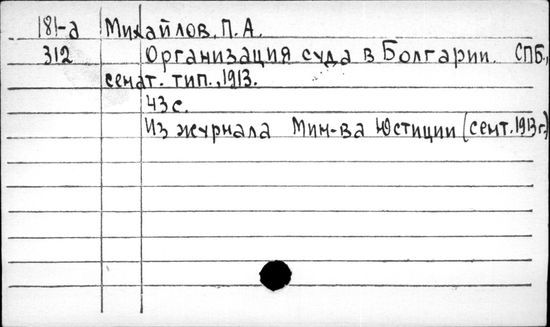 181-а Михайлов, П. А.
312 Организация суда в Болгарии. СПБ.,
сенат. тип., 1913.
43 с.
Из журнала Мин-ва Юстиции (сент. 1913 г.)